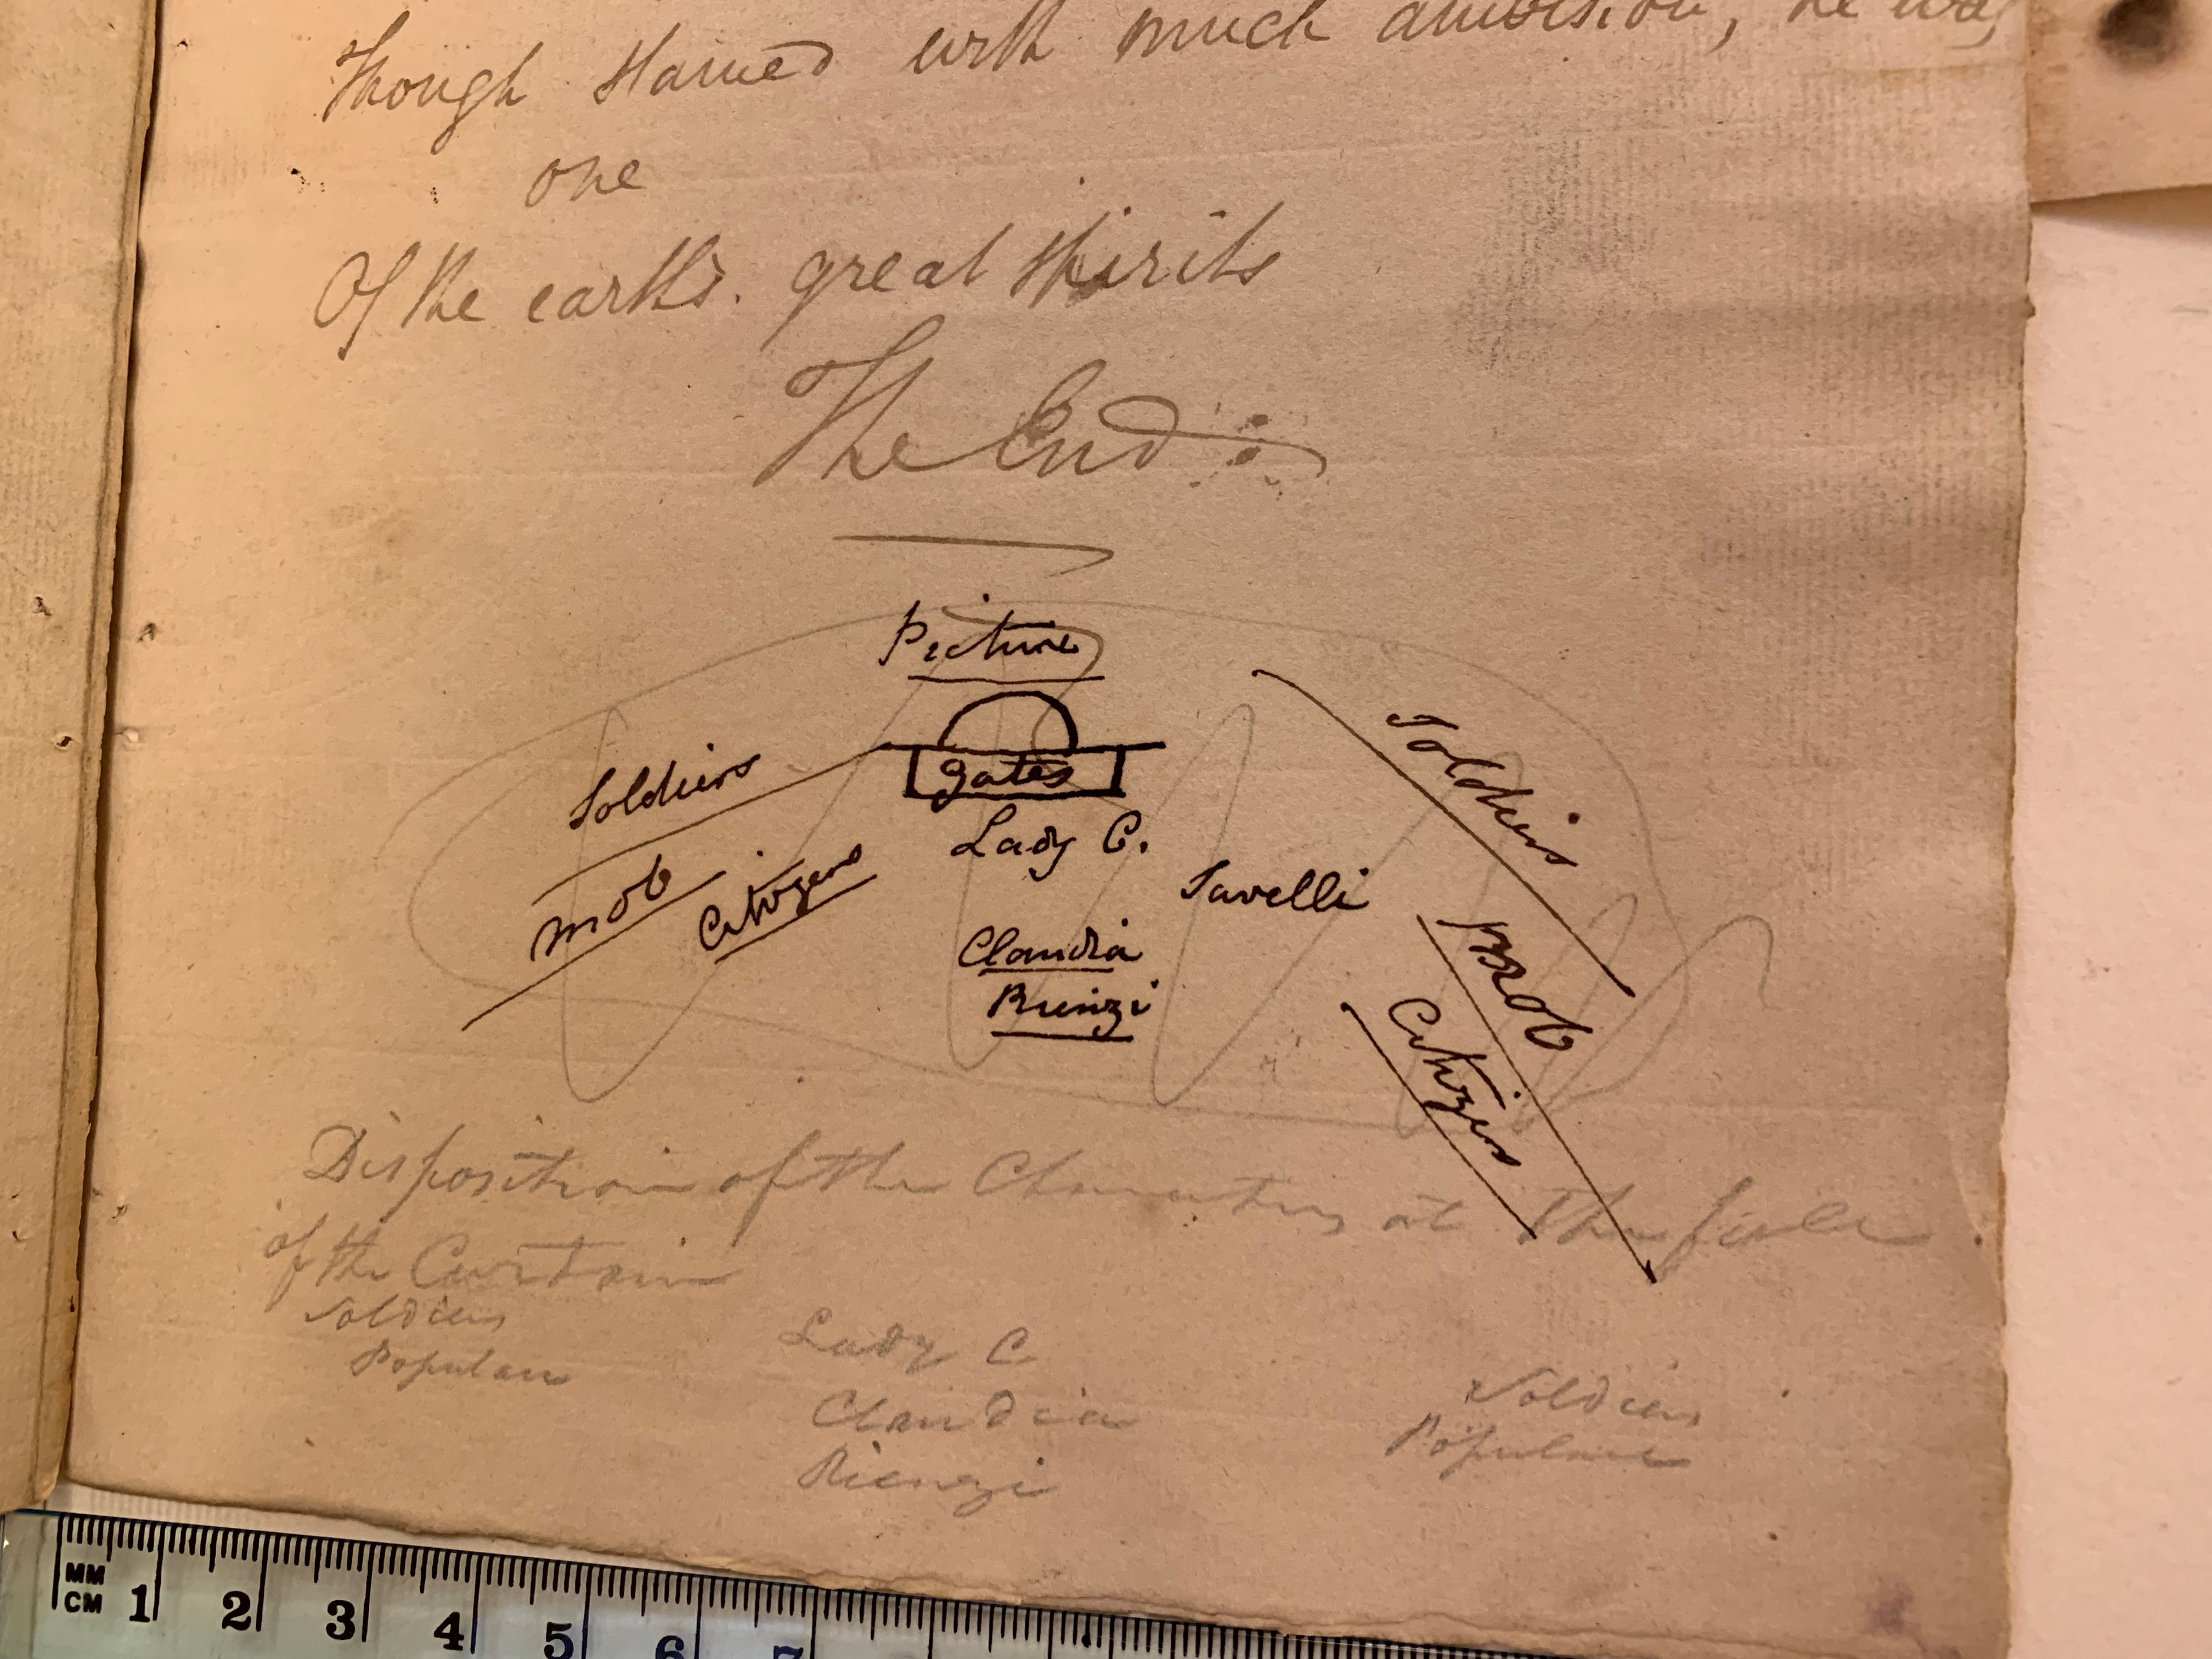 Though stained with much ambition, he was
one
Of the earth's great spirits
The End
Picture
Soldiers
Soldiers
gates
Lady C.
mob
Citizens
Savelli
Claudia
Rienzi
mob
Citizens
Disposition of the Characters at the fall
of the Curtain
Soldiers
Populace
Lady C
Claudia
Rienzi
Soldiers
Populace
MM
CM 1 2 3 4 5 6 7